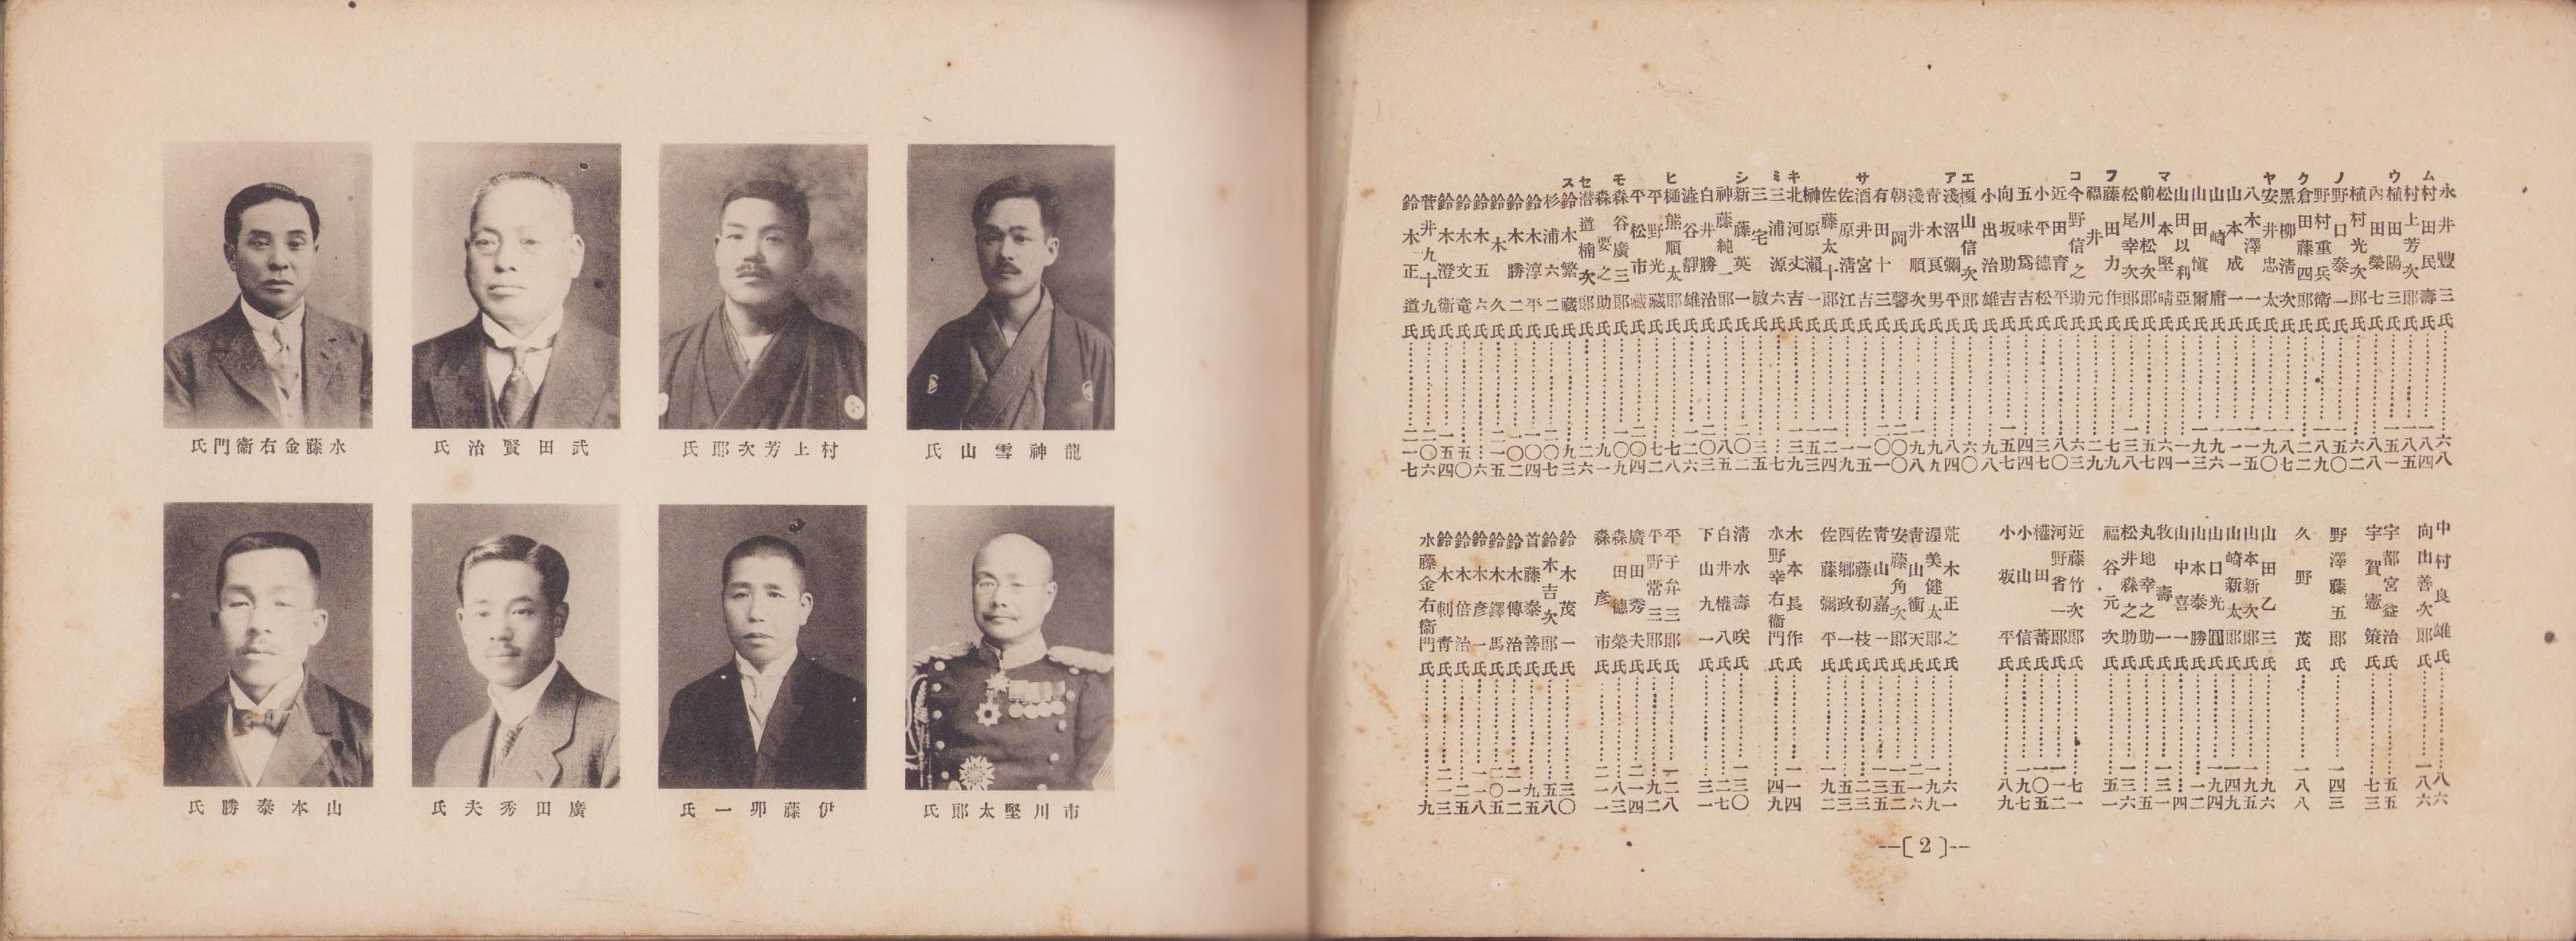 ム ウ ノ ク ヤ マ フ コ エ ア サ キ ミ シ ヒ モ セ ス
永井豐三氏…六八
村田民壽氏…一八四
村上芳次郎氏…一八五
植田陽三氏…一五一
內田榮七氏…八八
植村光次郎氏…六二
野口泰一氏…一五〇
野村重兵衛氏…八九
倉田藤四郎氏
黑柳清次氏…八七
安井忠太氏…一九〇
八木澤一氏…一一五
山本成一氏…一一一
山崎庸氏…九六
山田愼爾氏…一九三
山田以利亞氏…一一
松本堅晴氏…六四
前川松次郎氏…一五七
松尾幸次郎氏…一三八
藤田力作氏…七九
福井元氏
今野信之助氏…六三
近田育平氏…八〇
小平德松氏…三七
五味爲吉氏…四四
向坂助吉氏…一五四
小出治雄氏…八
榎山信次郎氏…六〇
淺沼彌平氏…八四
青木良男氏…九九
淺井順次氏…一九八
朝岡馨氏…二〇〇
有田十三氏…二〇一
酒井宮吉氏…一五
佐原清江氏…一九
佐藤太十郎氏…一二四
榊原瀨一氏…一五三
北河丈吉氏…一三九
三浦源六氏…七
三宅敏氏…三五
新藤英一氏…二〇二
神藤純一郎氏…八五
白井勝治氏…二〇三
澁谷靜雄氏…一二六
樋熊順太郎氏…七八
平野光藏氏…七二
平松市藏氏…二〇四
森谷廣三郎氏…一〇九
森要之助氏…九一
潜道楠次郎氏…二六
鈴木繁藏氏…九三
杉浦六二氏…二〇七
鈴木淳平氏…一〇四
鈴木勝二氏…一〇二
鈴木久氏…二一五
鈴木五六氏…六
鈴木文竜氏…五〇
鈴木澄衞氏…一五四
菅井九十九氏…二〇六
鈴木正道氏…二一七
中村良雄氏…八六
向山善次郎氏…一八六
宇都宮益治氏…五五
宇賀憲策氏…七三
野澤藤五郎氏…一四三
久野茂氏…一八八
山田乙三氏…九六
山本新次郎氏…一九五
山崎新太郎氏…一四九
山口光圓氏…九四
山本泰勝氏…一一二
山中喜一氏…四
牧壽一氏…一三一
丸地幸之助氏…五
松井森之助氏…一三六
福谷元次氏…五一
近藤竹次郎氏…七一
河野省一郎氏…一一二
權田蕃氏…一〇五
小山信氏…九七
小坂平氏…八九
荒木正之氏…六一
渥美健太郎氏…一九九
青山衝天氏…二一六
安藤角次郎氏…一五二
青山嘉一氏…一三五
佐藤初枝氏…二三
西鄉政一氏…五三
佐藤彌平氏…一九二
木本長作氏…一一四
水野幸右衞門氏…四九
淸水壽咲氏…一三〇
白井權八氏…二七
下山九一氏…三一
平子弁三郎氏…一二八
平野常三郎氏…九二
廣田秀夫氏…二一四
森田德榮氏…八三
森彥市氏…二一一
鈴木茂一氏…三〇
鈴木吉次郎氏…五八
首藤泰善氏…九五
鈴木傳治氏…二一二
鈴木鐸馬氏…二〇五
鈴木彥一氏…一一八
鈴木倍治氏…二五
鈴木剌靑氏…二一三
水藤金右衞門氏…九
―〔2〕―
龍神雪山氏
村上芳次郎氏
武田賢治氏
水藤金右衞門氏
市川堅太郎氏
伊藤卯一氏
廣田秀夫氏
山本泰勝氏